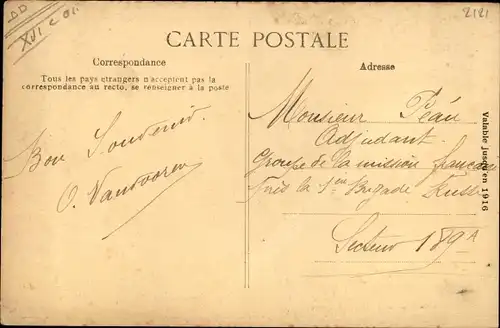 DD
XVI c 01.
2121
CARTE POSTALE
Correspondance
Tous les pays étrangers n'acceptent pas la
correspondance au recto, se renseigner à la poste
Bon Souvenir.
O. Vanvooren
Adresse
Monsieur Péau
Adjudant.
Groupe de la mission française
Près la 1ère Brigade Russe
Secteur 189A
Valable jusqu'en 1916